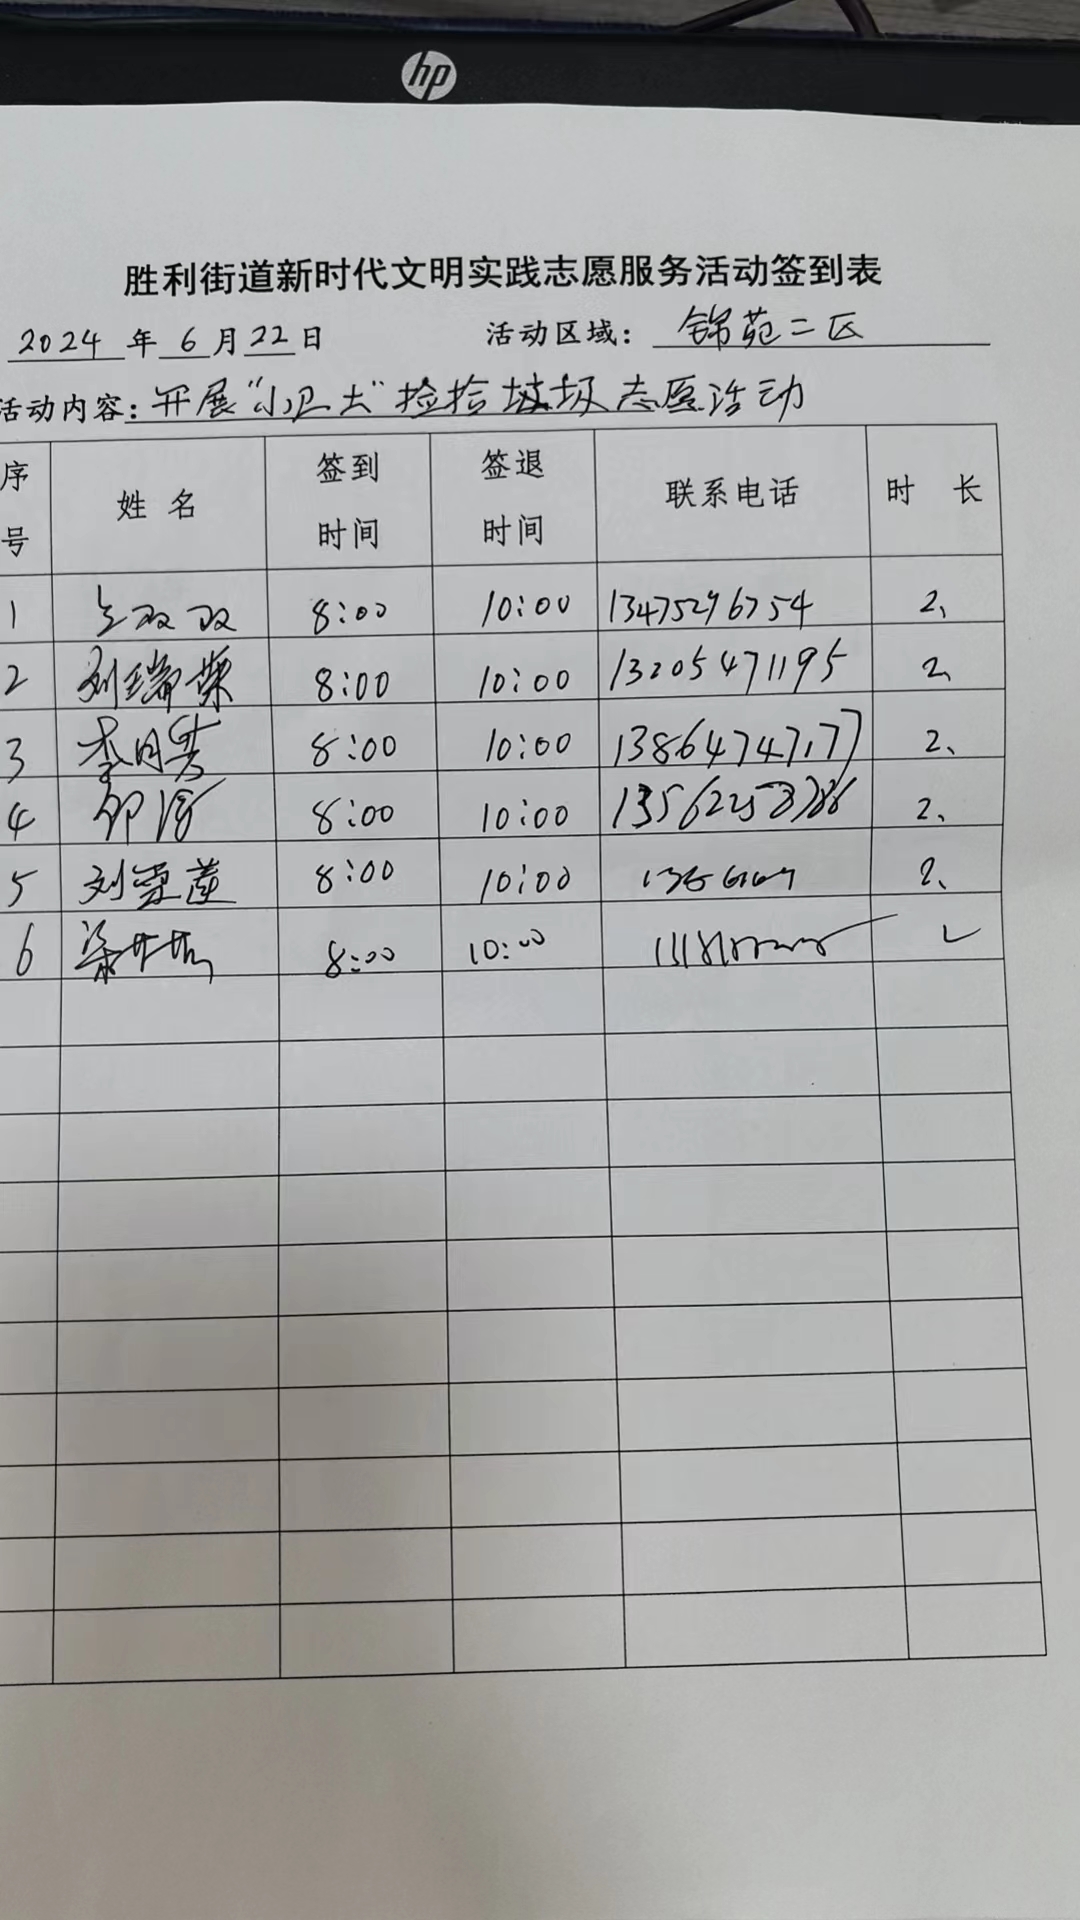 hp
胜利街道新时代文明实践志愿服务活动签到表
2024年6月22日 活动区域：锦苑二区
活动内容：开展“小卫士”捡拾垃圾志愿活动
序号 姓名 签到时间 签退时间 联系电话 时长
1 双双 8:00 10:00 13475296754 2、
2 刘瑞荣 8:00 10:00 13205471195 2、
3 李月 8:00 10:00 13864747177 2、
4 8:00 10:00 2、
5 刘雪莲 8:00 10:00 2、
6 梁 8:00 10:00 2